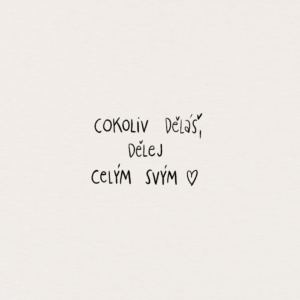 COKOLIV DĚLÁŠ,
DĚLEJ
CELÝM SVÝM ♡